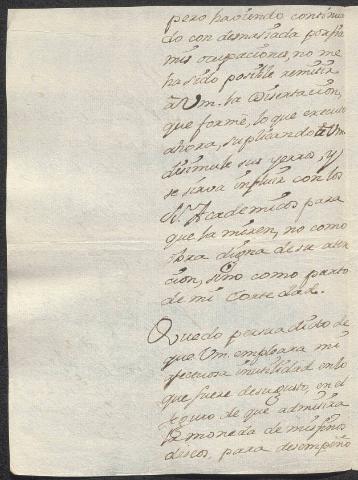 pero haviendo continua
do con demasiada porfia
mis ocupaciones, no me
ha sido posible remitir
à Vm. la Disertacion,
que formè, lo que executo
ahora, suplicando à Vm
disimule sus yerros, y
se sirva influir con los
SS. Academicos para
que la miren, no como
obra digna de su aten
cion, sino como parto
de mi cortedad.
Quedo persuadido de
que Vm. empleara mi
afectuosa inutilidad en lo
que fuere de su gusto, en el
seguro de que admitira
la moneda de mis finos
deseos, para desempeño